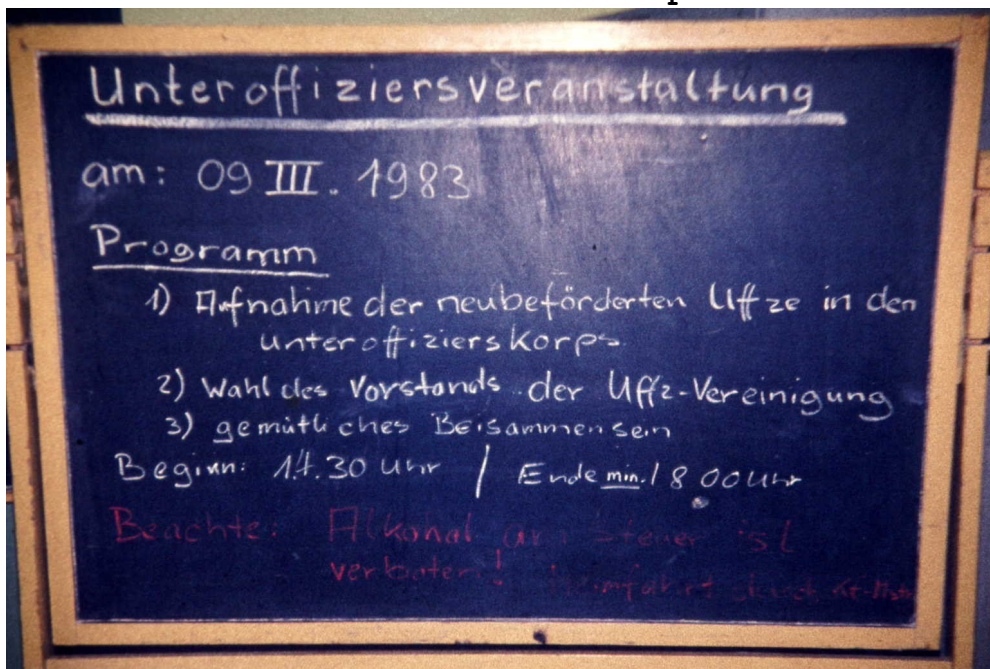 Unteroffiziersveranstaltung
am: 09 III. 1983
Programm
1) Aufnahme der neubeförderten Uffze in den
Unteroffizierskorps
2) Wahl des Vorstands der Uffz-Vereinigung
3) gemütliches Beisammensein
Beginn: 14.30 Uhr / Ende min. 18 00 Uhr
Beachte: Alkohol am Steuer ist
verboten! Heimfahrt durch